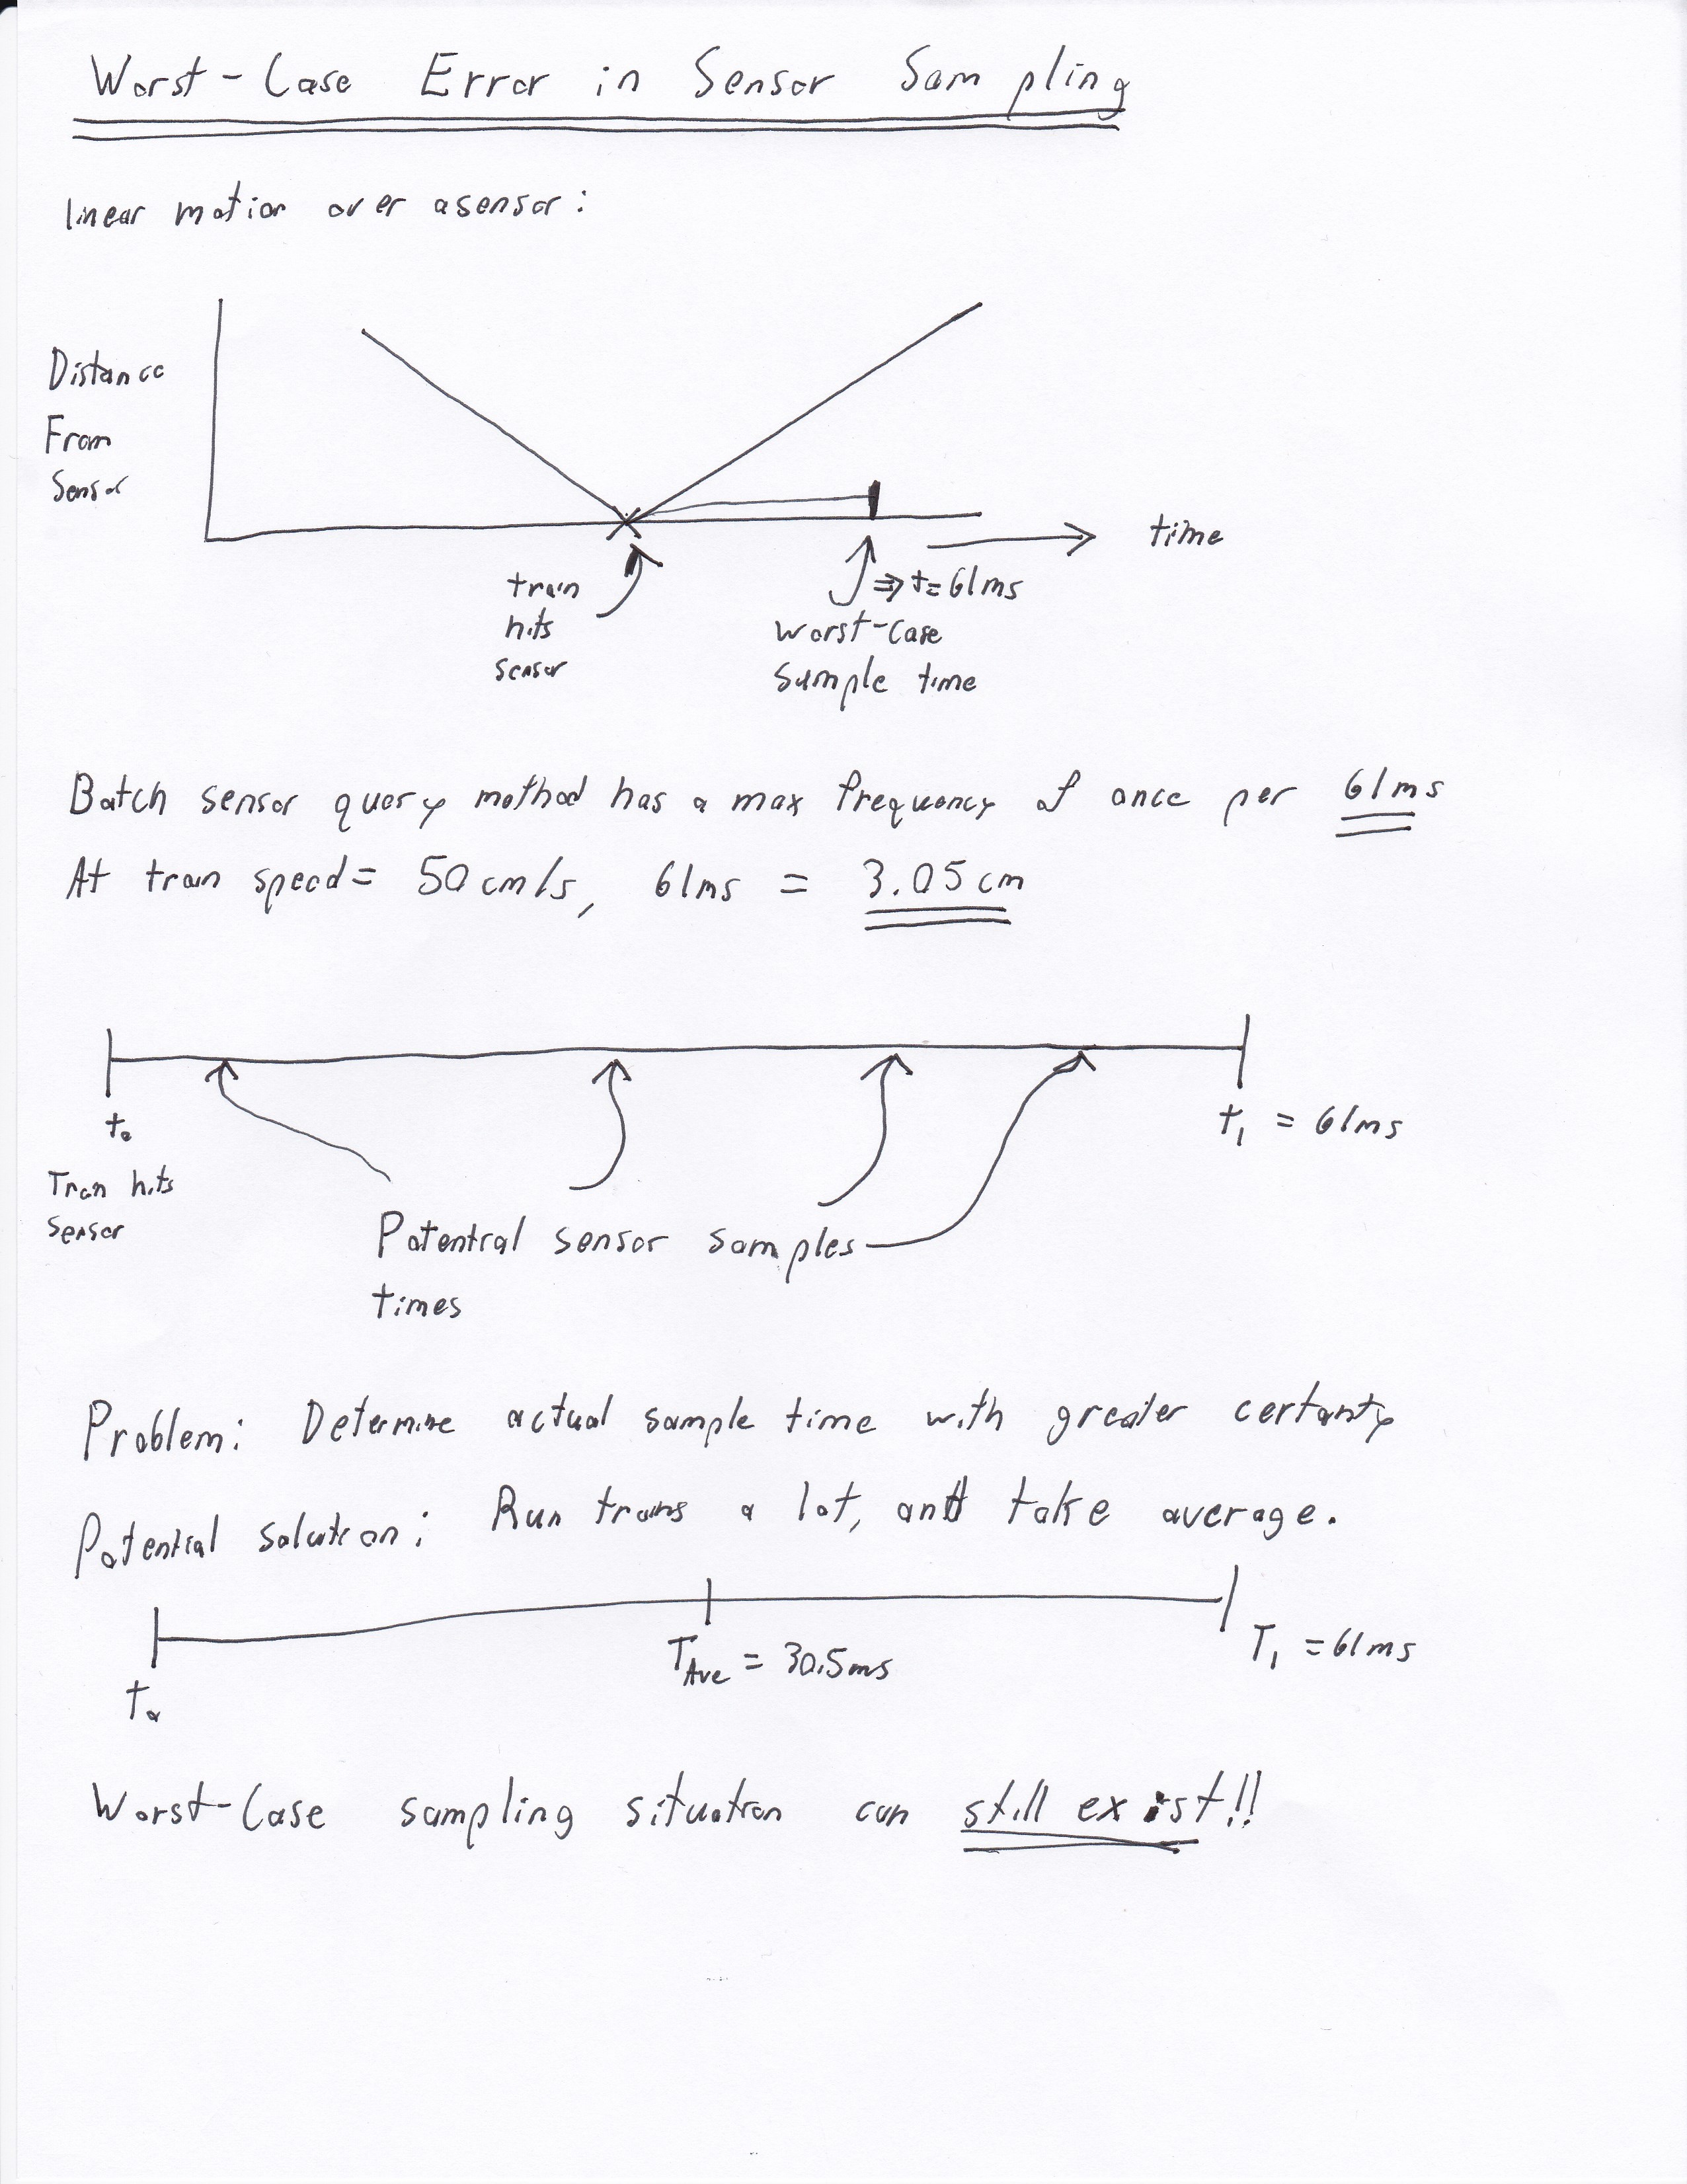 Worst-Case Error in Sensor Sampling
linear motion over a sensor:
Distance
From
Sensor
time
train
hits
sensor
⇒ t=61ms
worst-case
sample time
Batch sensor query method has a max frequency of once per 61ms
At train speed = 50cm/s, 61ms = 3.05cm
t₀
Train hits
sensor
t₁ = 61ms
Potential sensor samples
times
Problem: Determine actual sample time with greater certanty
Potential solution: Run trains a lot, and take average.
T₀
T_Ave = 30.5ms
T₁ = 61ms
Worst-Case sampling situation can still exist!!